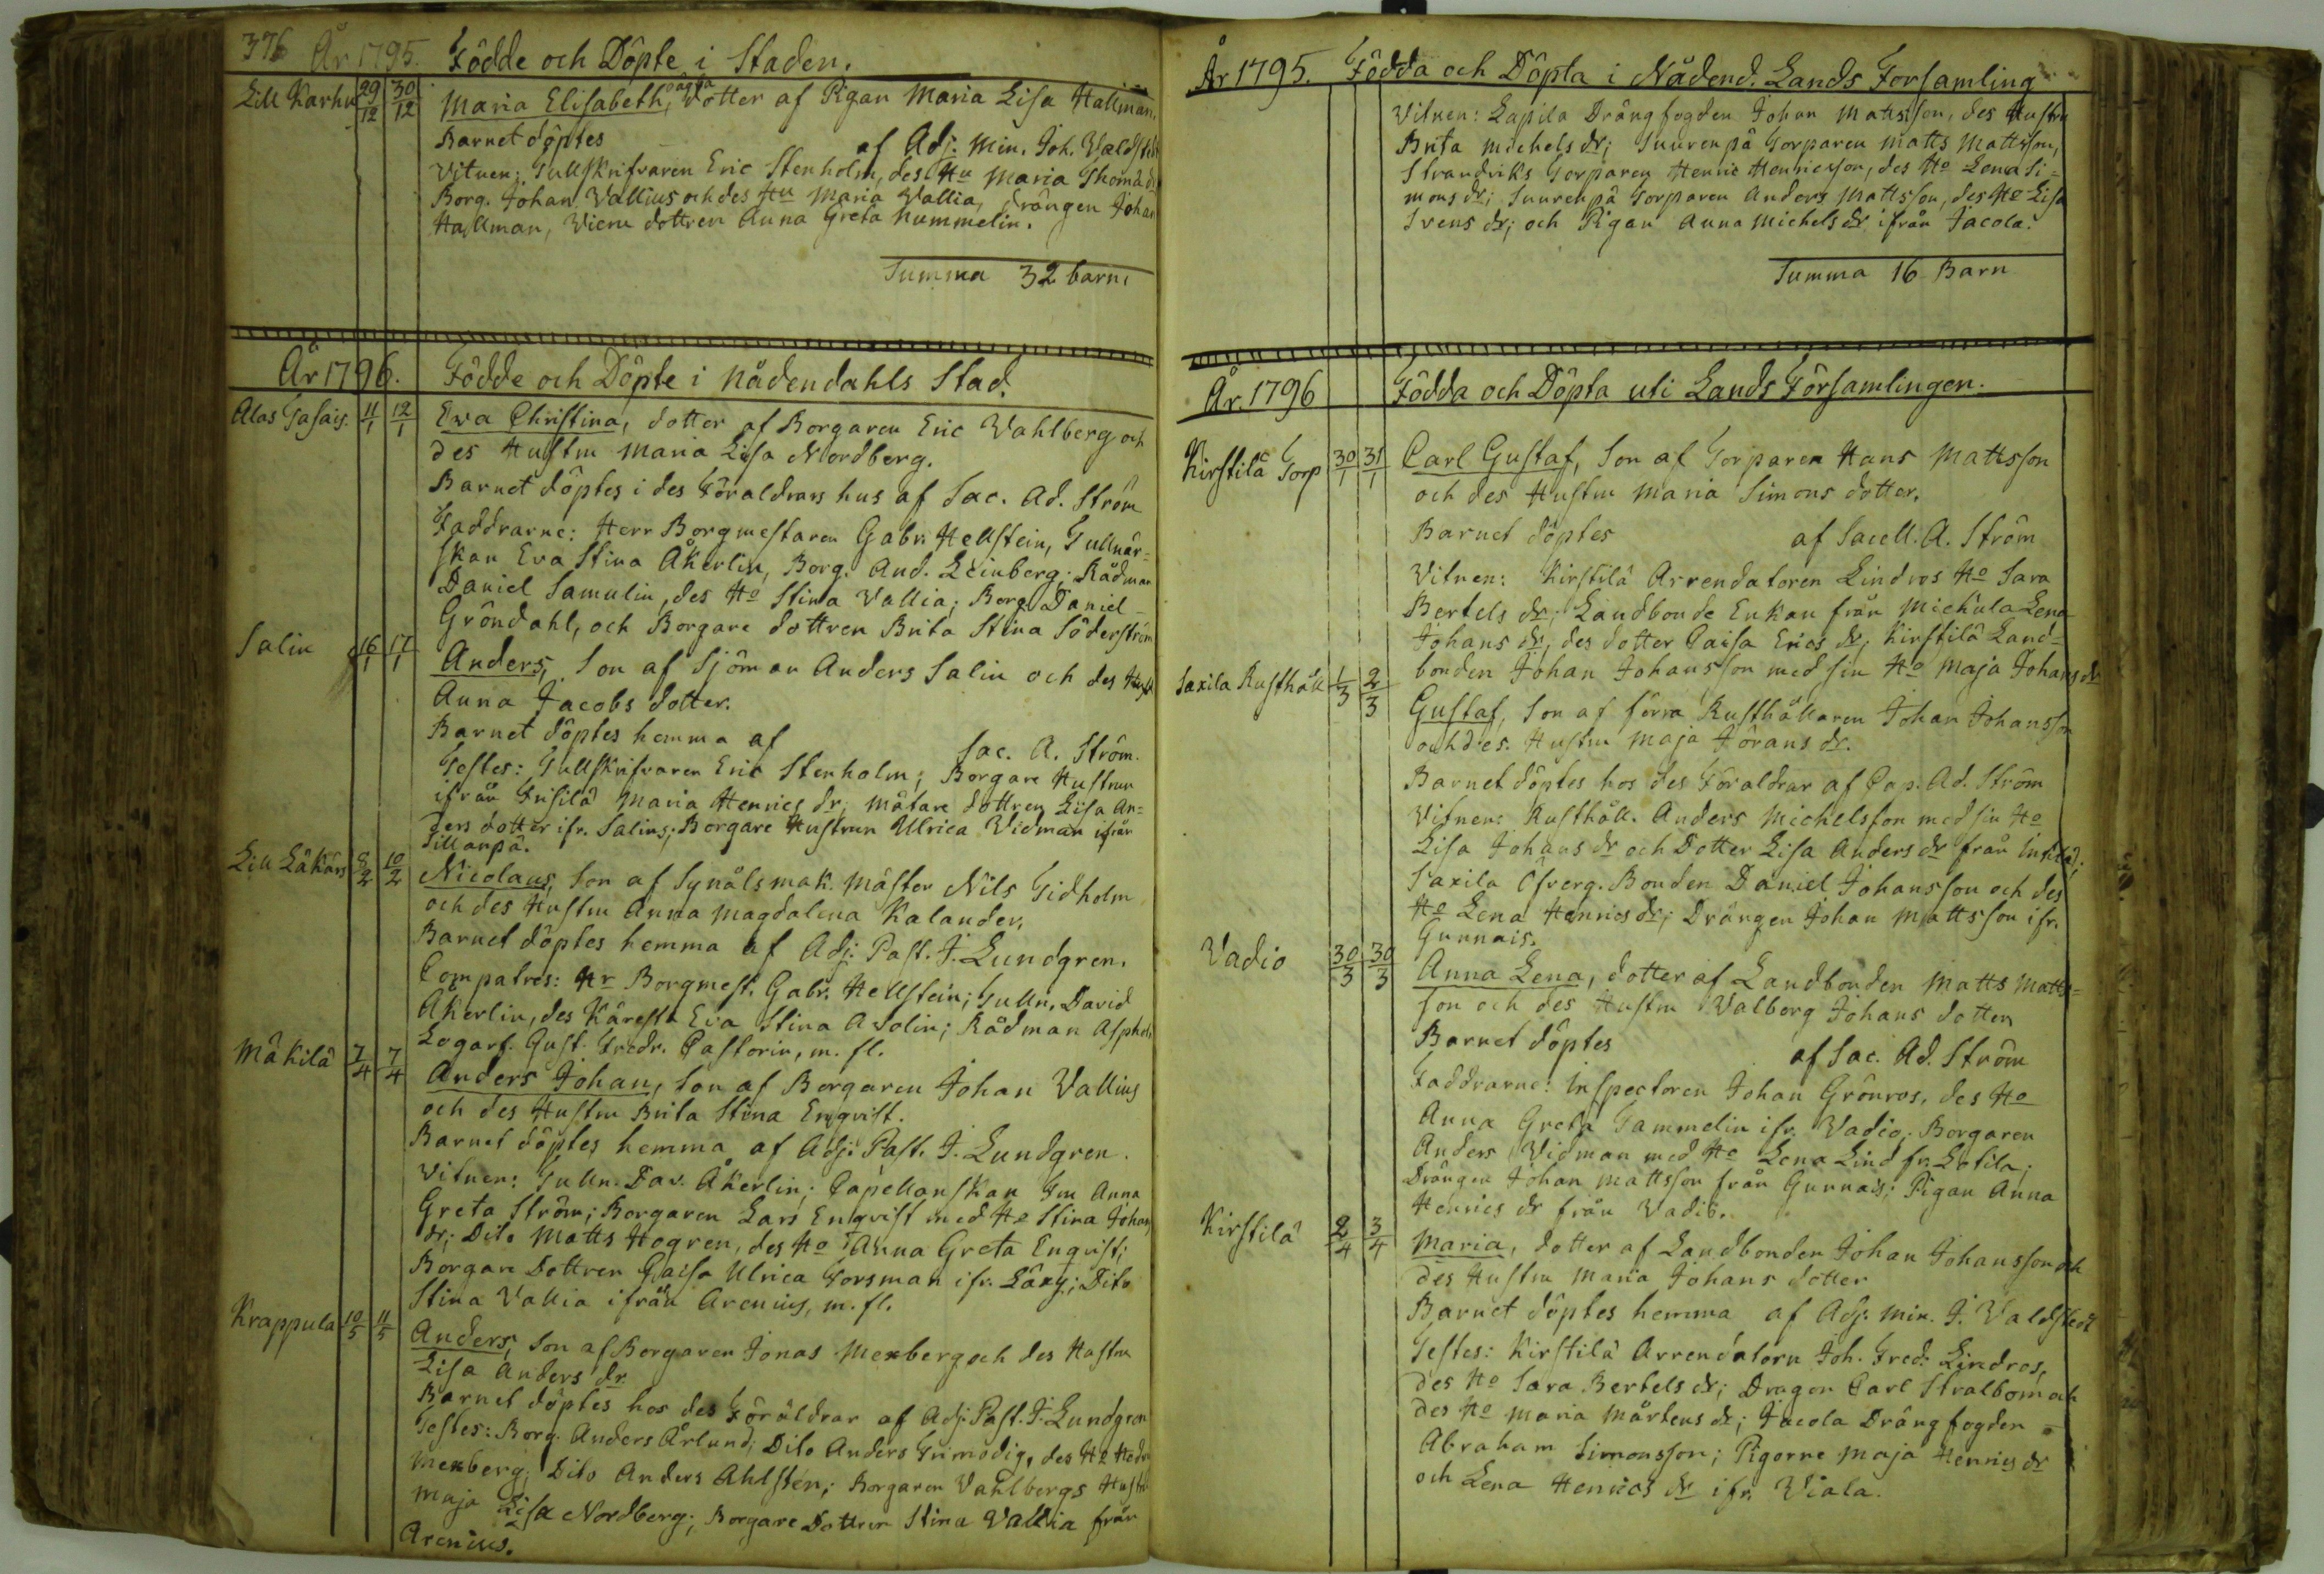 376 År 1795. Födde och Döpte i Staden.
Lill Karhu 29/12 30/12 Maria Elisabeth, oägta Dotter af Pigan Maria Lisa Hallman.
Barnet döptes af Adj. Min. Joh. Valdstedt
Vitnen: Tullskrifvaren Eric Stenholm, des Hu Maria Thomædr
Borg. Johan Vallius och des Hu Maria Vallia, drängen Johan
Hallman, Viene dottren Anna Greta Nummelin.
Summa 32 barn.
År 1796. Födde och Döpte i Nådendahls Stad.
Alas Tasais. 11/1 12/1 Eva Christina, dotter af Borgaren Eric Vahlberg och
des Hustru Maria Lisa Nordberg.
Barnet döptes i des Föraldrars hus af Sac. Ad. Ström
Faddrarne: Herr Borgmestaren Gabr. Hellstein, Tullnär-
skan Eva Stina Åkerlin, Borg. And. Leinberg; Rådman
Daniel Samulin, des Ho Stina Vallia; Borg. Daniel
Gröndahl, och Borgare dottren Brita Stina Söderström
Salin 16/1 17/1 Anders, Son af Sjöman Anders Salin och des Hust
Anna Jacobs dotter.
Barnet döptes hemma af Sac. A. Ström.
Testes: Tullskrifvaren Eric Stenholm; Borgare Hustrun
ifrån Frisilä Maria Henrics dr; Mätare dottren Lisa An-
ders dotter ifr. Salins; Borgare Hustrun Ulrica Vidman ifrån
Sillanpä.
Lill Läkärs 8/2 10/2 Nicolaus, Son af Synålsmak. Mäster Nils Gidholm
och des Hustru Anna Magdalena Kalander.
Barnet döptes hemma af Adj. Past. J. Lundgren.
Compatres: Hr Borgmest. Gabr. Hellstein; Tulln. David
Åkerlin, des Käresta Eva Stina Asolin; Rådman Asphol
Logarf. Gust. Fredr. Pastorin, m. fl.
Mäkilä 7/4 7/4 Anders Johan, Son af Borgaren Johan Vallius
och des Hustru Brita Stina Enqvist.
Barnet döptes hemma af Adj. Past. J. Lundgren.
Vitnen: Tulln. Dav. Åkerlin; Capellanskan Fru Anna
Greta Ström; Borgaren Lars Enqvist med Ho Stina Johans
dr; Dito Matts Hogren, des Ho Anna Greta Enqvist;
Borgare Dottren Caisa Ulrica Forsman ifr. Läxy; Dito
Stina Vallia ifrån Arenius, m. fl.
Krappula 10/5 11/5 Anders, Son af Borgaren Jonas Mexberg och des Hustru
Lisa Anders dr.
Barnet döptes hos des Föräldrar af Adj. Past. J. Lundgren
Testes: Borg. Anders Ärlund; Dito Anders Frimodig, des Ho Hedv
Mexberg; Dito Anders Ahlsten; Borgaren Vahlbergs Hustru
Maja Lisa Nordberg; Borgare Dottren Stina Vallia från
Arenius.
År 1795. Födda och Döpta i Nådend. Lands Forsamling
Vitnen: Lapila Drängfogden Johan Mattsson, des Hustru
Brita Michels dr; Suurenpä Torparen Matts Mattsson,
Strandviks Torparen Henric Henricsson, des Ho Lena Si-
mons dr; Suurenpä Torparen Anders Mattsson, des Ho Lisa
Svens dr; och Pigan Anna Michels dr ifrån Jacola.
Summa 16 Barn
År. 1796 Födda och Döpta uti Lands Församlingen.
Kirstilä Torp 30/1 31/1 Carl Gustaf, Son af Torparen Hans Mattsson
och des Hustru Maria Simons dotter.
Barnet döptes af Sacell. A. Ström
Vitnen: Kirstilä Arrendatoren Lindros Ho Sara
Bertels dr; Landbonde Enkan från Michula Lena
Johans dr, des dotter Caisa Erics dr; Kirstilä Land-
bonden Johan Johansson med sin Ho Maja Johans dr
Saxila Rusthåll 1/3 2/3 Gustaf, Son af förra Rusthållaren Johan Johansson
och des Hustru Maja Jörans dr.
Barnet döptes hos des Föraldrar af Cap. Ad. Ström
Vitnen: Rusthåll. Anders Michelsson med sin Ho
Lisa Johans dr och Dotter Lisa Anders dr från Intilä;
Saxila Öfverg. Bonden Daniel Johansson och des
Ho Lena Henrics dr; Drängen Johan Mattsson ifr.
Gunnais.
Vadio 30/3 30/3 Anna Lena, dotter af Landbonden Matts Matts-
son och des Hustru Valborg Johans dotter
Barnet döptes af Sac. Ad. Ström
Faddrarne: Inspectoren Johan Grönros, des Ho
Anna Greta Tammelin ifr. Vadio; Borgaren
Anders Vidman med Ho Lena Lind fr. Lotila;
Drängen Johan Mattsson från Gunnais; Pigan Anna
Henrics dr från Vadio.
Kirstilä 2/4 3/4 Maria, dotter af Landbonden Johan Johansson och
des Hustru Maria Johans dotter
Barnet döptes hemma af Adj. Min. J. Valdstedt
Testes: Kirstilä Arrendatorn Joh. Fred: Lindros,
des Ho Sara Bertels dr; Dragon Carl Stralbom och
des Ho Maria Mårtens dr; Jacola Drängfogden
Abraham Simonsson; Pigorne Maja Henrics dr
och Lena Henrics dr ifr. Viala.